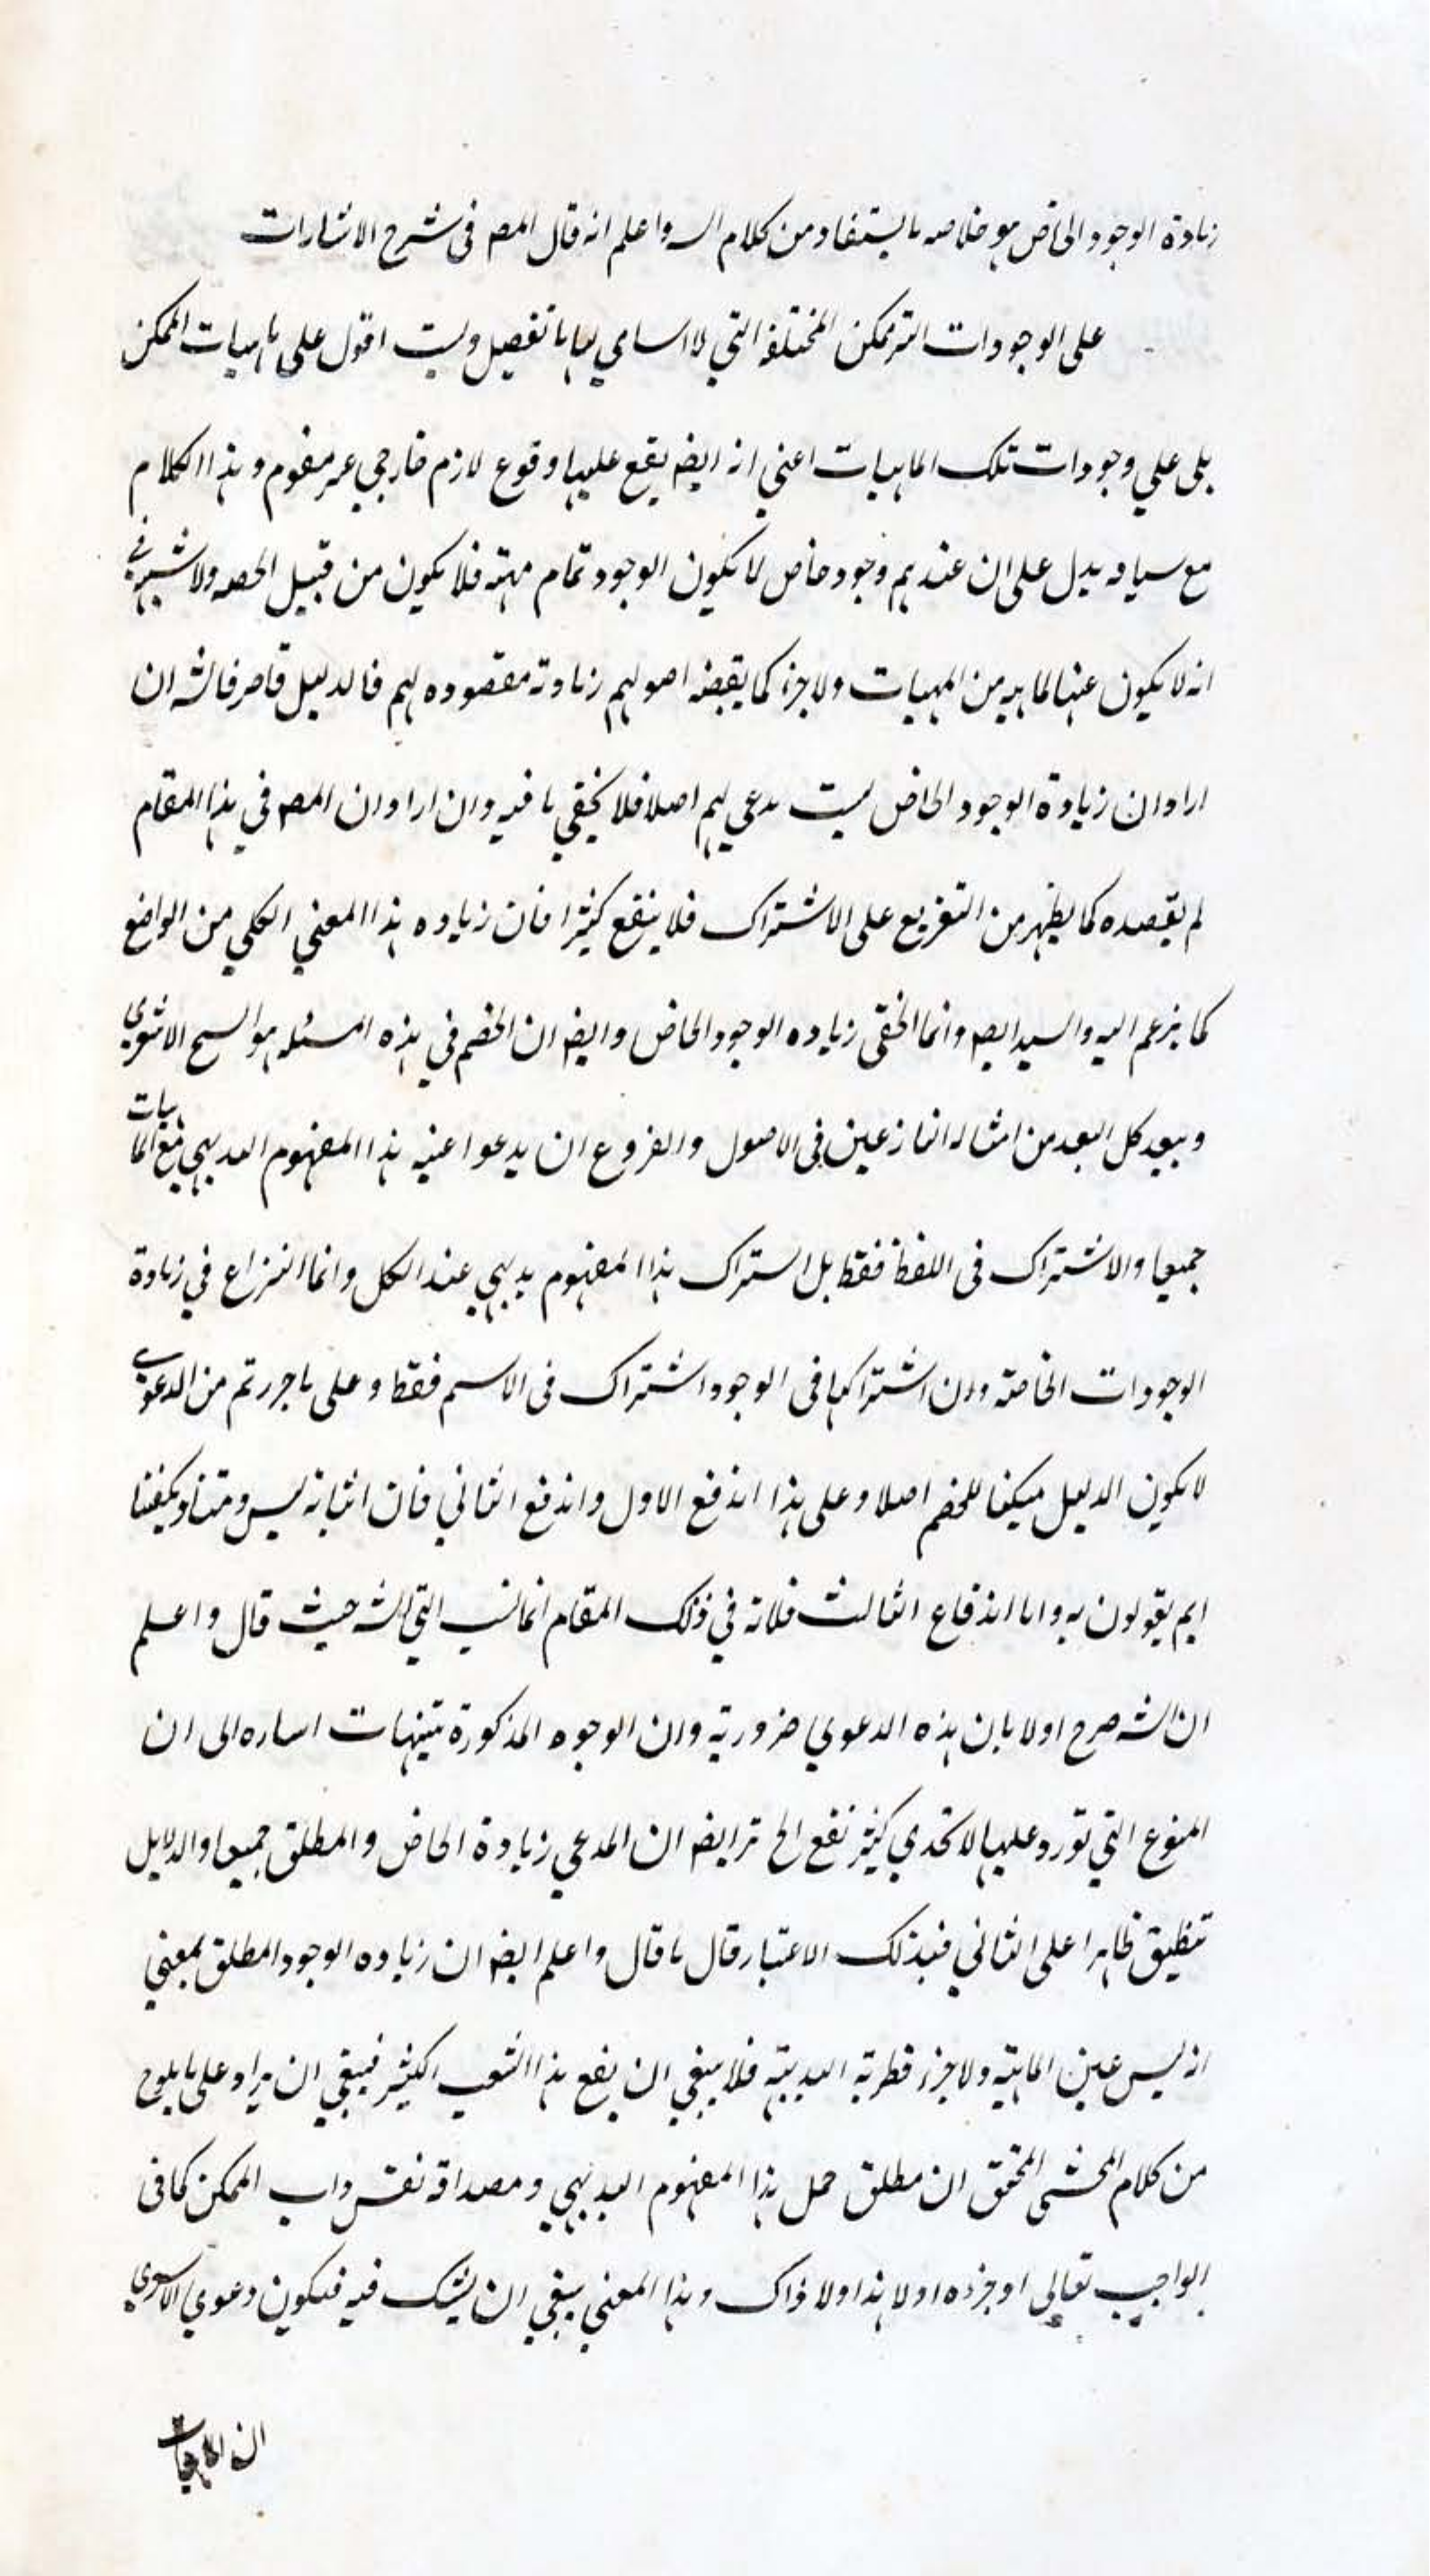 زيادة الوجود الخاص هو خلاصه ما يستفاد من كلام الس واعلم انه قال المص فى شرح الاشارات
على الوجودات المختلفة التي لا اسامي لها بالتفصيل وليت اقول على ماهيات الممكن
بلى علي وجودات تلك الماهيات اعني انه ايضه يقع عليها وقوع لازم خارجي غير مقوم وهذا الكلام
مع سياقه يدل على ان عندهم وجود خاص لا يكون الوجود تمام مهيته فلا يكون من قبيل الحصه ولا شبهة في
انه لا يكون عينا لماهيه من المهيات ولا جزءا كما يقتضه اصولهم زيادته مقصوده لهم فالدليل قاصر فالشه ان
اراد ان زيادة الوجود الخاص ليت بمدعى لهم اصلا فلا يخفي ما فيه وان اراد ان المص في هذا المقام
لم يقصده كما يظهر من التفريع على الاشتراك فلا ينفع كثيرا فان زياده هذا المعني الكلي من الواضع
كما يزعم اليه والسيد ايضه وانما الخفى زياده الوجود الخاص وايضه ان الخصم في هذه المسئله هو السح الاشعري
وبعيد كل البعد من امثاله النازعين فى الاصول والفروع ان يدعوا عينيه هذا المفهوم البديهي مع الماهيات
جميعا والاشتراك فى اللفظ فقط بل استراك هذا المفهوم بديهي عند الكل وانما النزاع في زيادة
الوجودات الخاصة وان اشتراكها فى الوجود اشتراك فى الاسم فقط وعلى ما حررتم من الدعوى
لا يكون الدليل مبكتا للخصم اصلا وعلى هذا اندفع الاول واندفع الثاني فان اثباته ليس
ايم يقولون به واما اندفاع الثالث فلانه في ذلك المقام الشه حيث قال واعلم
ان الشه صرح اولا بان هذه الدعوي ضرورية وان الوجوه المذكورة تنبيهات اساره الى ان
المنوع التي تورد عليها لا تجدي كثير نفع الخ ثم ايضه ان المدعي زيادة الخاص والمطلق جميعا والدلايل
تنطبق ظاهرا على الثاني فبذلك الاعتبار قال ما قال واعلم ايضه ان زياده الوجود المطلق بمعني
انه ليس عين الماهية ولا جزء فطرية البديهة فلا ينبغي ان يقع هذا الشعب الكثير فينبغي ان يراد على ما يلوح
من كلام المحشى المحقق ان مطلق حمل هذا المفهوم البديهي ومصداقه نفس ذات الممكن كما فى
الواجب تعالى او جزءه او لا هذا ولا ذاك وهذا المعني ينبغي ان يشك فيه فيكون دعوي الاشعري